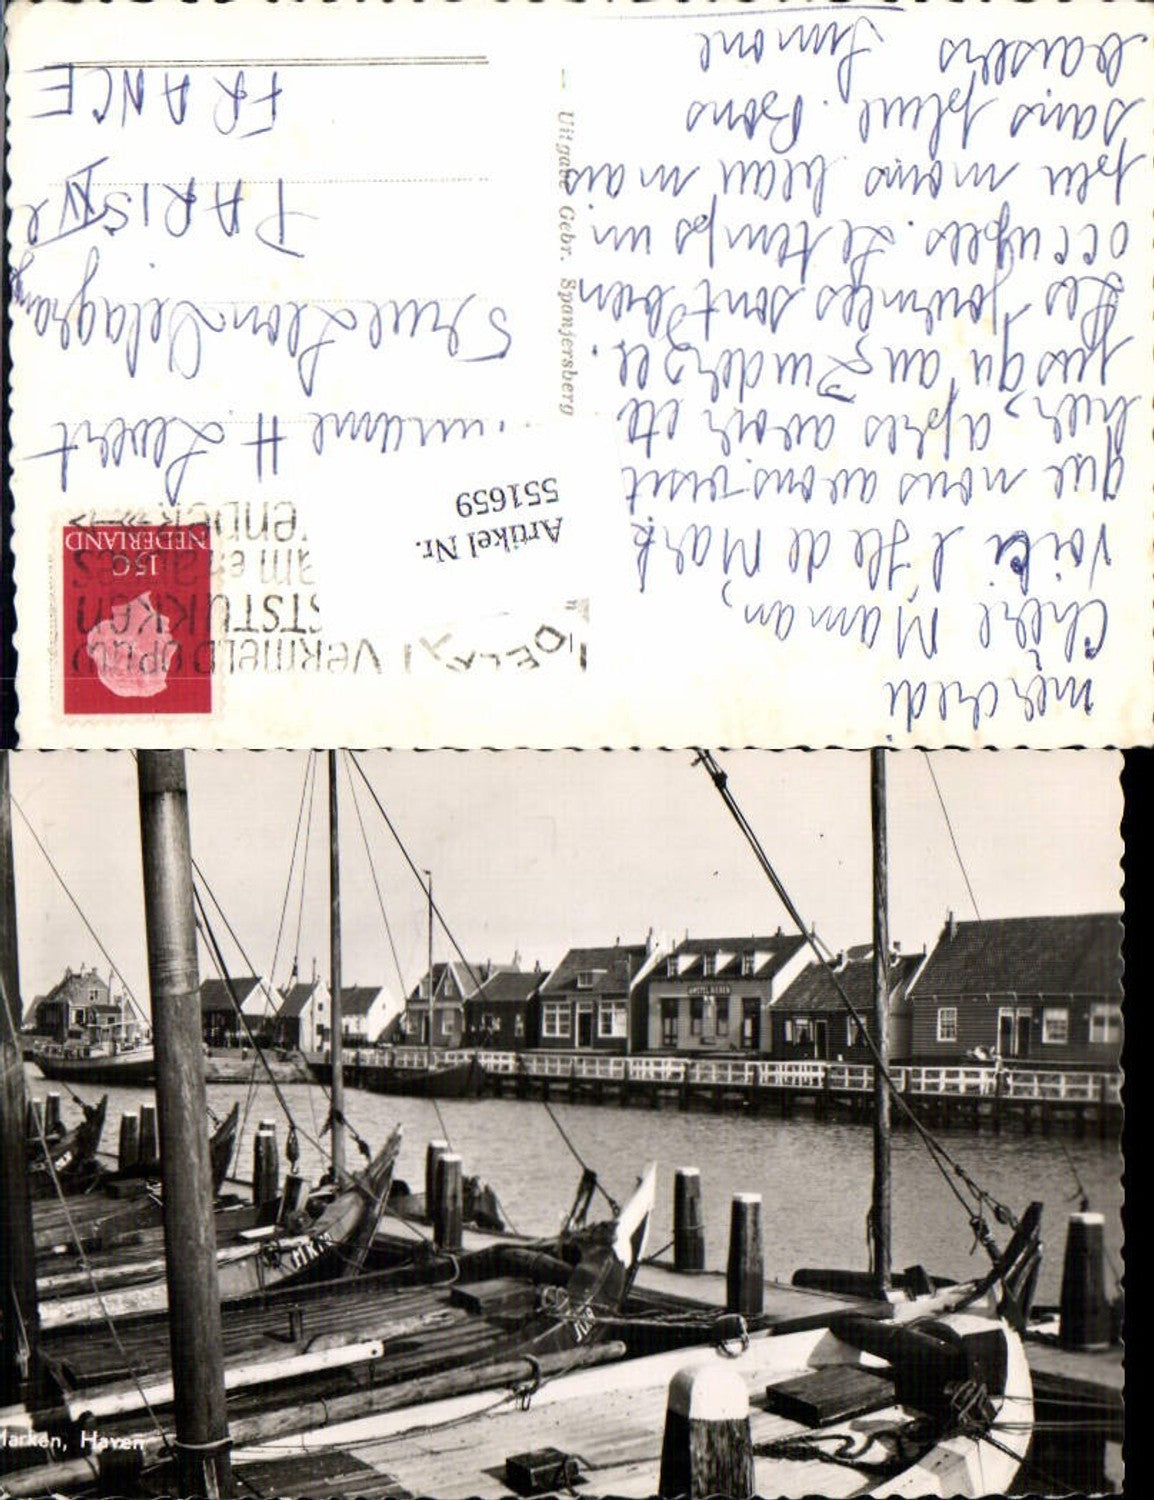 mercredi
Chère Maman,
Voici l'Ile de Mark
que nous avons visit
hier, après avoir été
jusqu'au Zuidersee.
Les journées sont bien
occupées. Le temps un
peu moins beau mais
sans pluie. Bons
baisers Simone
Uitgave Gebr. Spanjersberg
VERMELD OP UW
STSTUKKEN
15C
NEDERLAND
Artikel Nr.
551659
H. Levert
5 rue Léon Delagrange
PARIS XVe
FRANCE
AMSTEL BIEREN
Marken, Haven